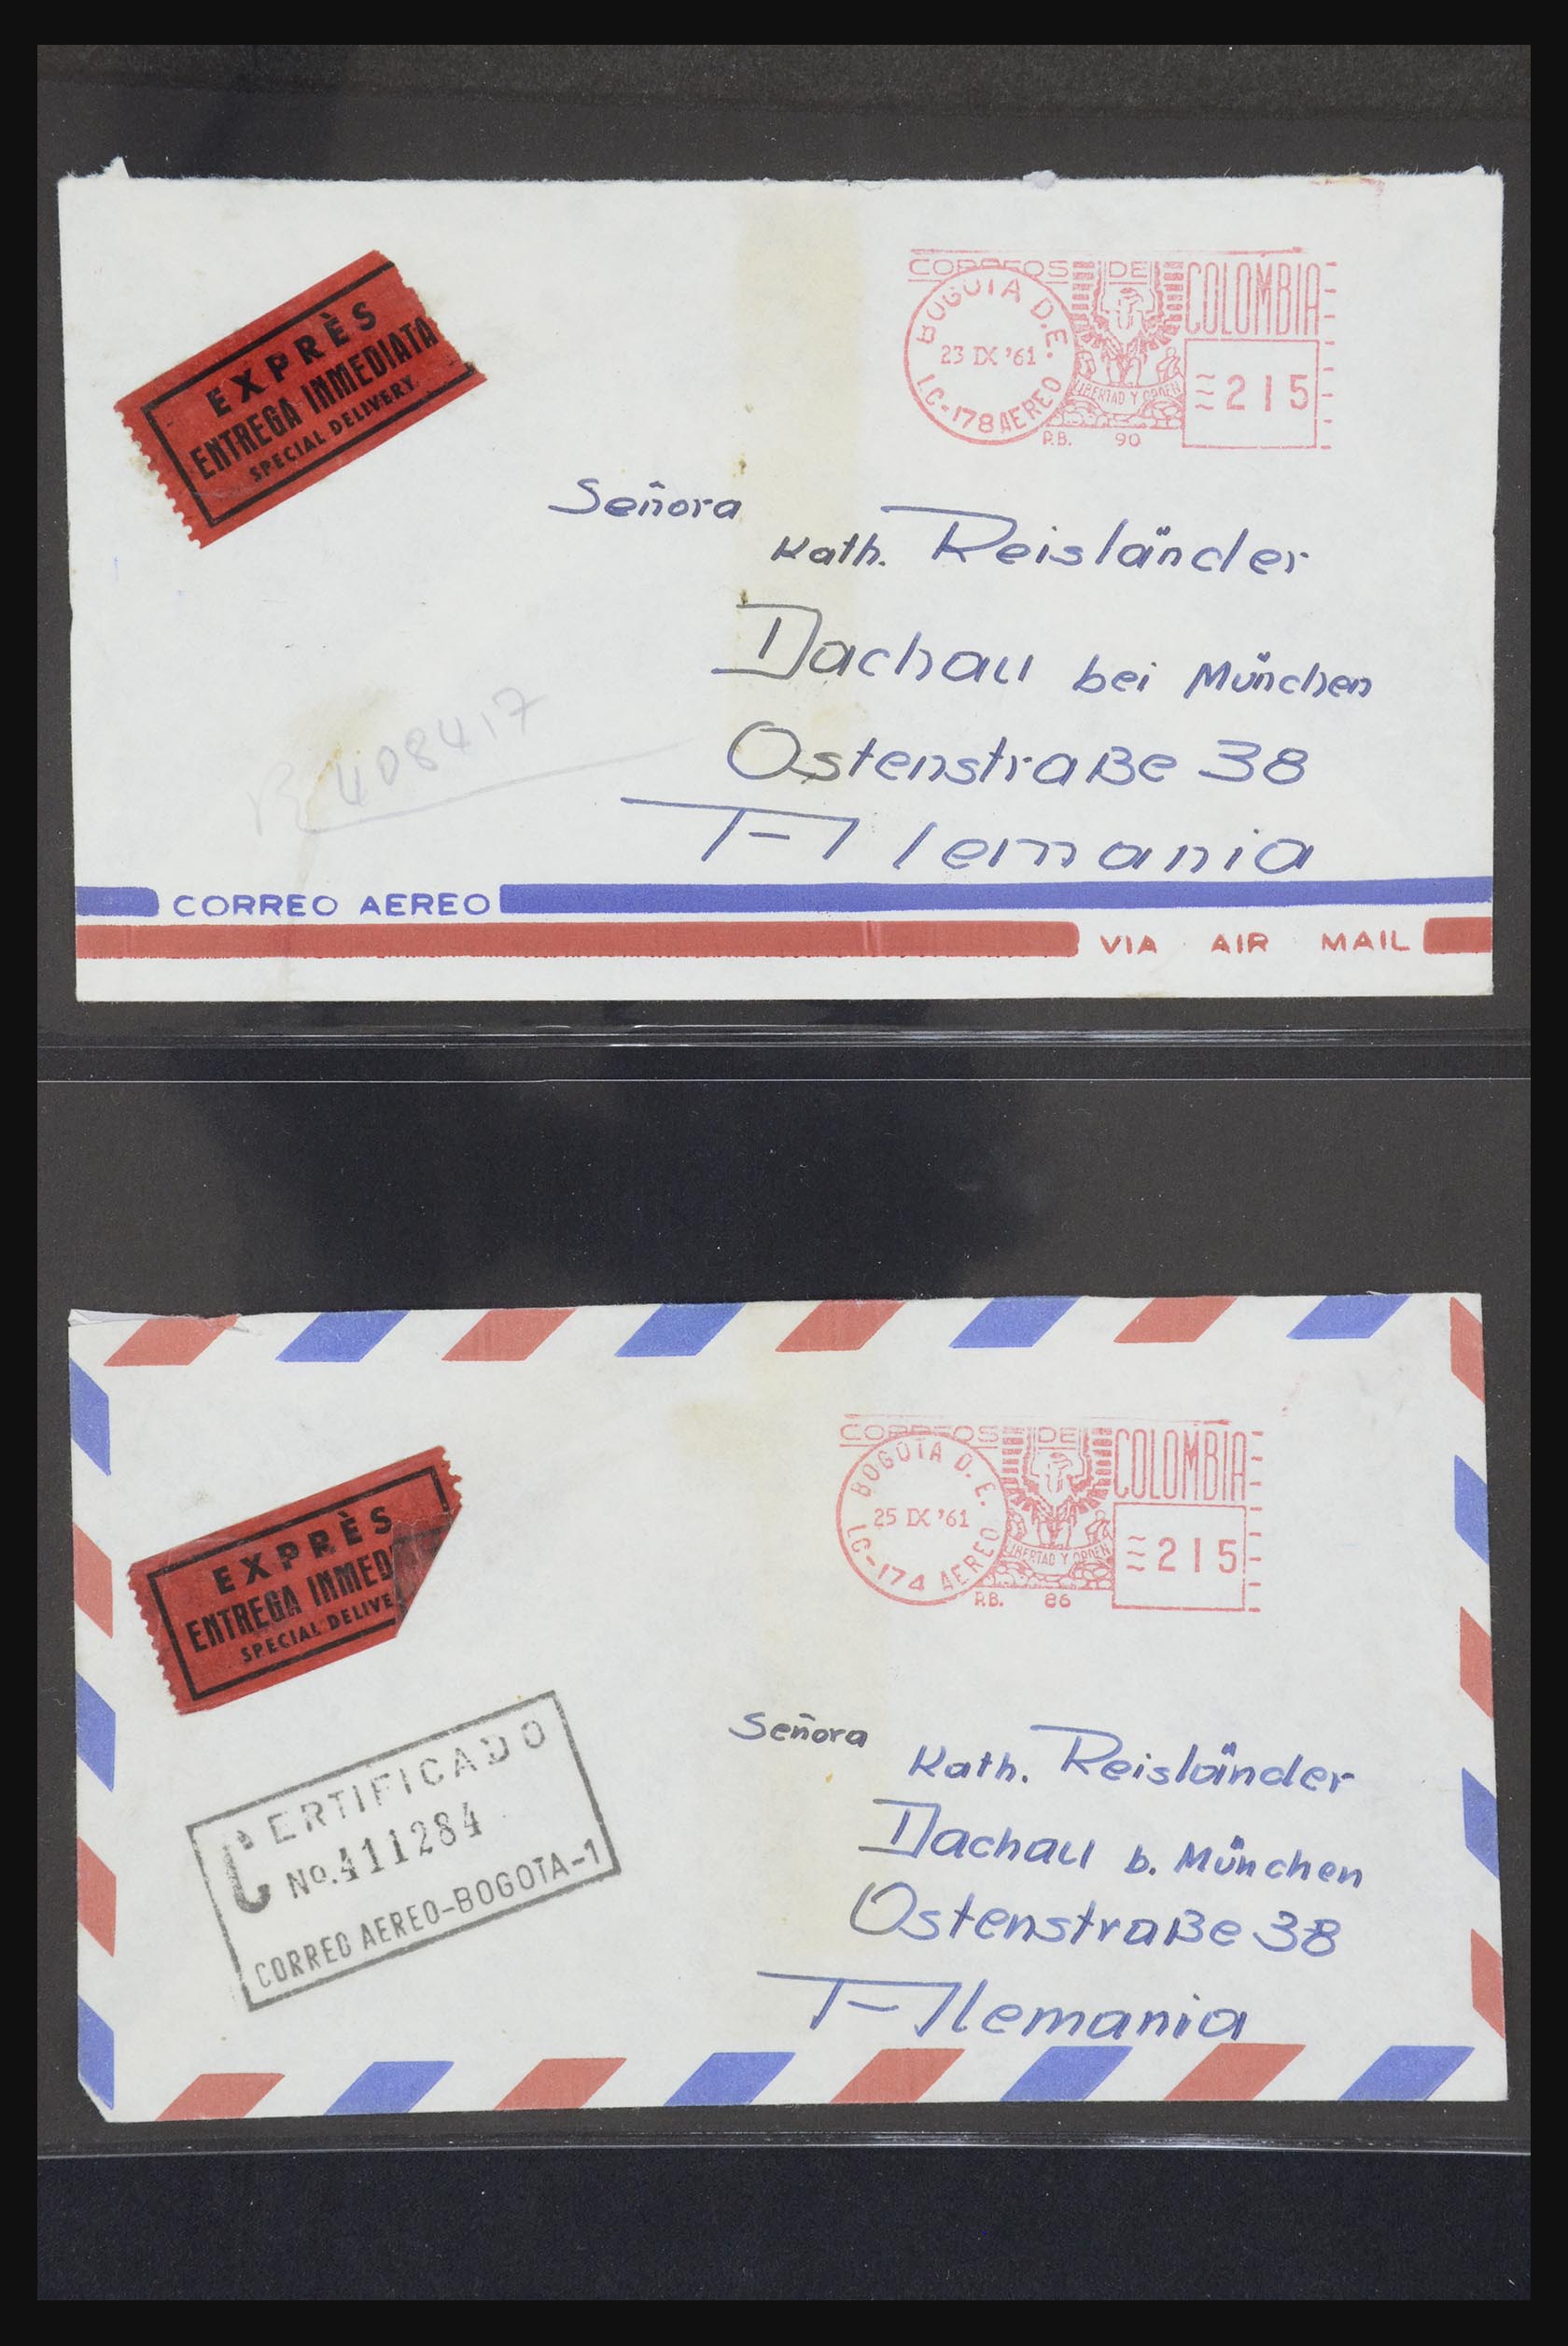 EXPRÈS
ENTREGA INMEDIATA
SPECIAL DELIVERY
CORREOS DE COLOMBIA
BOGOTA D.E.
23 IX '61
I.C-178 AEREO
LIBERTAD Y ORDEN
P.B. 90
215
Señora
Kath. Reisländer
Dachau bei München
Ostenstraße 38
Alemania
R 408417
CORREO AEREO
VIA AIR MAIL
CORREOS DE COLOMBIA
BOGOTA D.E.
25 IX '61
I.C-174 AEREO
LIBERTAD Y ORDEN
P.B. 86
215
EXPRÈS
ENTREGA INMED
SPECIAL DELIVE
CERTIFICADO
C No. 411284
CORREO AEREO-BOGOTA-1
Señora
Kath. Reisländer
Dachau b. München
Ostenstraße 38
Alemania